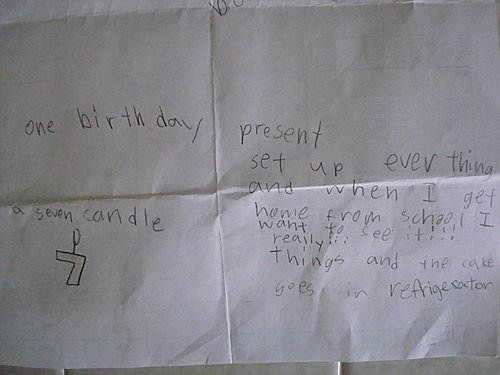 one birthday present
set up ever thing
and when I get
home from school I
want to see it!!!
really!!!
things and the cake
goes in refrigerator
a seven candle
7